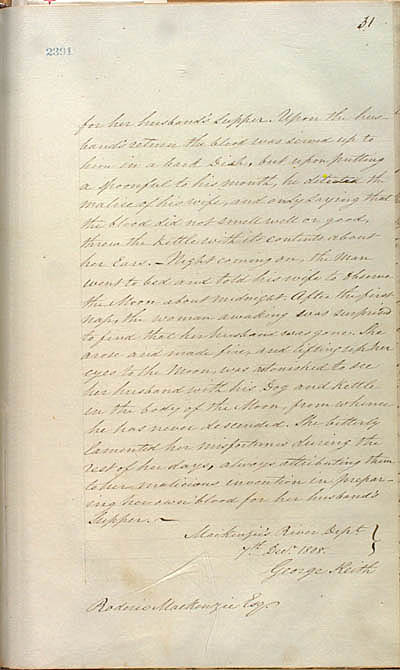 31
2391
for her husband's supper. Upon the hus-
band's return the blood was served up to
him in a bark Dish, but upon putting
a spoonful to his mouth, he detected the
malice of his wife, and only saying that
the blood did not smell well or good,
threw the kettle with its contents about
her Ears. — Night coming on, the Man
went to bed and told his wife to observe
the Moon about midnight. After the first
nap, the woman awaking was surprised
to find that her husband was gone. She
arose and made fire, and lifting up her
eyes to the Moon, was astonished to see
her husband with his Dog and kettle
in the body of the Moon, from whence
he has never descended. She bitterly
lamented her misfortunes during the
rest of her days, always attributing them
to her malicious invention in prepar-
ing her own blood for her husband's
Supper. —
MacKenzie's River Dept
7th Decr 1808.
George Keith
Roderic MacKenzie Esq.